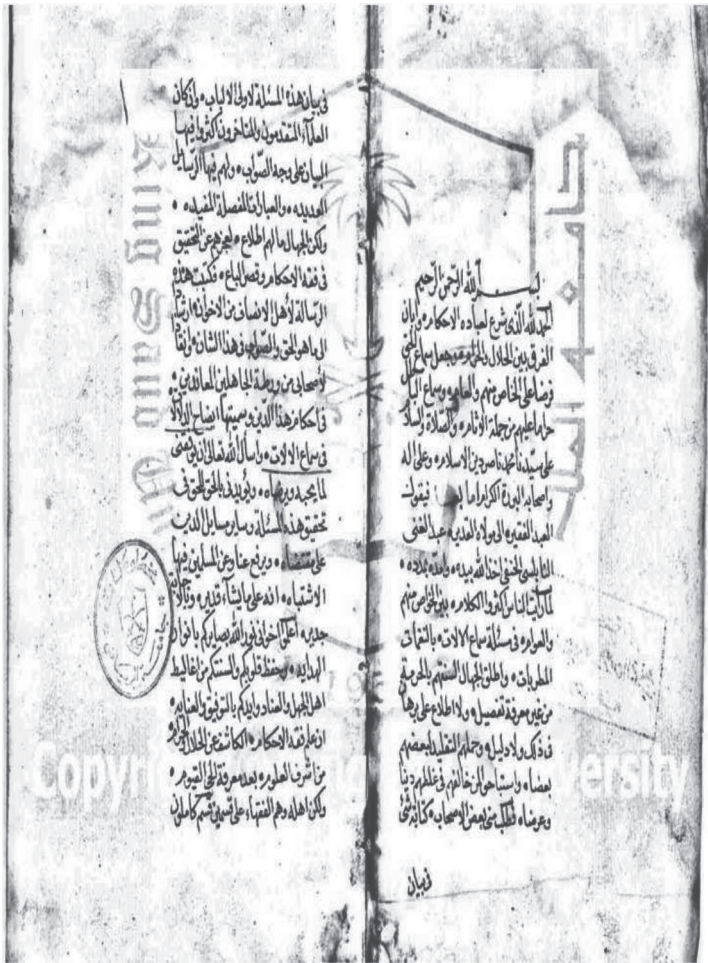 بسم الله الرحمن الرحيم
الحمد لله الذي شرع لعباده الاحكام وابان
الفرق بين الحلال والحرام وجعل سماع الحق
فرضا على الخاص منهم والعام وسماع الباطل
حراما عليهم من جملة الاثام والصلاة والسلام
على سيدنا محمد ناصر دين الاسلام وعلى اله
واصحابه البررة الكرام اما بعد فيقول
العبد الفقير الى مولاه القدير عبد الغني
النابلسي الحنفي اخذ الله بيده وامده بمدده
لما رايت الناس اكثروا الكلام بين الخواص منهم
والعوام في مسئلة سماع الالات بالنغمات
المطربات واطلق الجهال السنتهم بالحرمة
من غير معرفة تفصيل ولا اطلاع على برهان
في ذلك ولا دليل وحملهم التقليد لبعضهم
بعضا واستباحوا لمن خالفهم في غلطهم دينا
وعرضا فطلب مني بعض الاصحاب كتابة شئ
في بيان
في بيان هذه المسئلة لاولى الالباب واذ كان
العلمآء المتقدمون والمتاخرون اكثروا فيها
البيان على وجه الصواب ولهم فيها الرسائل
العديده والعبارات المفصلة المفيده
ولكن الجهال مالهم اطلاع لعجزهم عن التحقيق
في فقه الاحكام وقصر الباع فكتبت هذه
الرسالة لأهل الانصاف من الاخوان ارشادا
الى ما هو الحق والصواب في هذا الشان وانقاذا
لأصحابي من ورطة الجاهلين
في احكام هذا الدين وسميتها ايضاح الدلالات
في سماع الالات وأسأل الله تعالى ان يوفقني
لما يحبه ويرضاه ويؤيدني بالحق للحق في
تحقيق هذه المسئلة وساير مسايل الدين
على مقتضاه ويرفع عنا وعن المسلمين فيها
الاشتباه انه على ما يشآء قدير وبالاجابة
جدير اعلموا اخواني نور الله بصايركم بانوار
الهدايه وحفظ قلوبكم والسنتكم من اغاليط
اهل الجهل والعناد وايدكم بالتوفيق والعنايه
ان علم فقه الاحكام الكاشف عن الحلال والحرام
من اشرف العلوم بعد معرفة الحي القيوم
ولكن اهله وهم الفقهاء على قسمين قسم كاملون
جامعة الملك
King Saud University